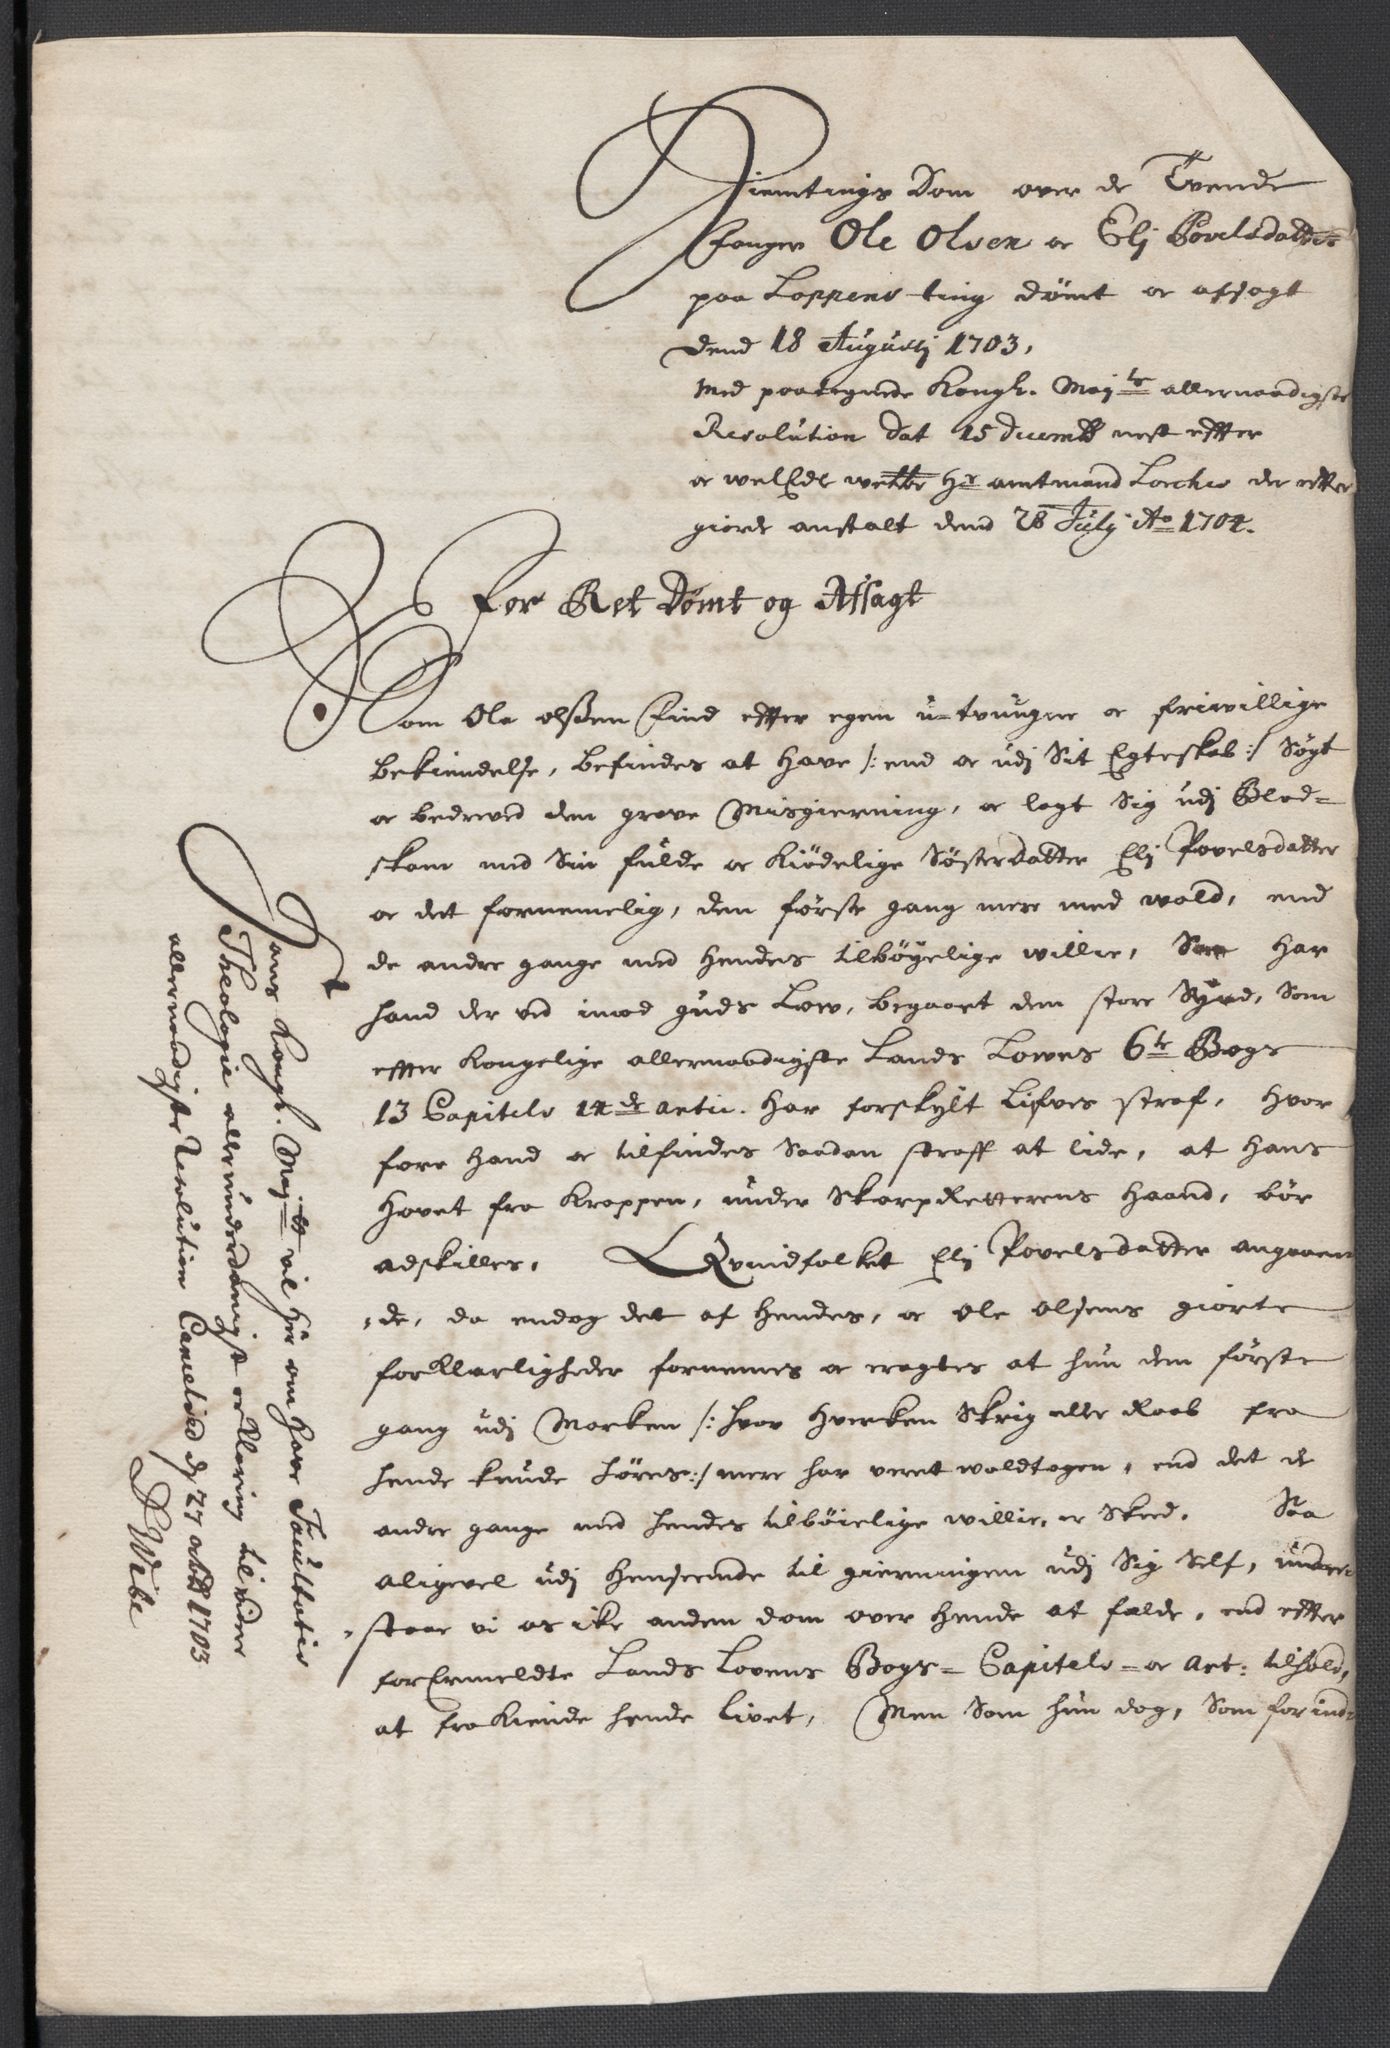 Hiemtings Dom over de Tvende
fanger Ole Olsen oc Elj Povelsdatter
paa Loppens ting dømt oc afsagt
dend 18 Augustj 1703,
Med paategnede Kongl. May:ts allernaadigste
Resolution dat 15 decemb nest effter
oc welEdle Hr amtmand Lorches der effter
giorde anstalt dend 28 Julj Ao 1704.
For Ret Dømt og Afsagt
Som Ole olssen Find effter egen u-tvungne oc friwillige
bekiendelse, befindes at have /: end oc udj Sit Egteskab :/ Søgt
oc bedrevd den grove Misgierning, oc lagt Sig udj Blod-
skam med Sin fulde oc Kiødelige Søsterdatter Elj Povelsdatter
oc det fornemelig, den første gang mere med wold, end
de andre gange med hendes tilbøyelige willie, Saa har
hand der ved imod guds Low, begaaet den store Synd, Som
effter Kongelige allernaadigste Lands Lowes 6te Bogs
13 Capitels 14de artic. har forskylt Lifves straf, hvor
fore hand oc tilfindes Saadan straff at lide, at hans
hovet fra Kroppen, under SkarpRetterens haand, bør
adskilles, Qvindfolket Elj Povelsdatter angaaen-
de, da endog det af hendes, oc Ole Olsens giorte
forKlarligheder fornemmes oc eragtes at hun den første
gang udj Marken /: hvor hverken Skrig eller Raab fra
hende kunde høres :/ mere har veret woldtagen, end det de
andre gange med hendes tilbøielige willie, er Skeed, Saa
aligevel udj henseende til gierningen udj Sig Self, under-
staar vi os ike anden dom over hende at fælde, end effter
forErmeldte Lands Lovens Bogs- Capitels- oc art: tilhold,
at fraKiende hende livet, Men Som hun dog, Som for ind-
Hans Kongl. May:tt vil her om have Facultatis
Theologiæ allerunderdanigst erKlæring til videre
allernaadigste Resolution Cancelied d 27 octob 1703
D Wibe